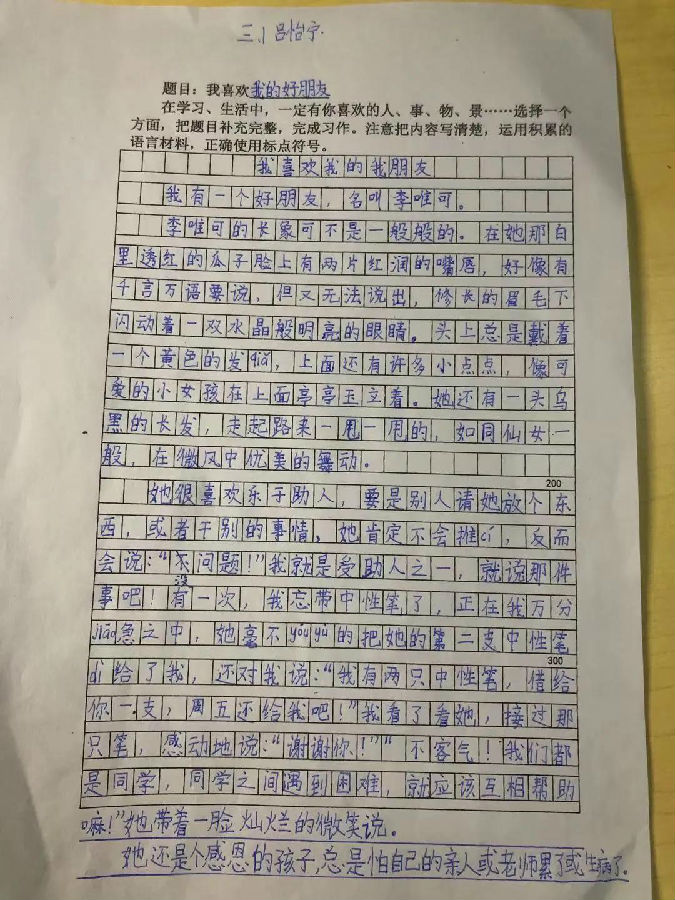 三.1 吕怡宁
题目：我喜欢我的好朋友
在学习、生活中，一定有你喜欢的人、事、物、景……选择一个
方面，把题目补充完整，完成习作。注意把内容写清楚，运用积累的
语言材料，正确使用标点符号。
我喜欢我的我朋友
我有一个好朋友，名叫李唯可。
李唯可的长象可不是一般般的。在她那白
里透红的瓜子脸上有两片红润的嘴唇，好像有
千言万语要说，但又无法说出，修长的眉毛下
闪动着一双水晶般明亮的眼睛。头上总是戴着
一个黄色的发qiǎ，上面还有许多小点点，像可
爱的小女孩在上面亭亭玉立着。她还有一头乌
黑的长发，走起路来一甩一甩的，如同仙女一
般，在微风中优美的舞动。
200
她很喜欢乐于助人，要是别人请她放个东
西，或者干别的事情，她肯定不会推cí，反而
会说：“没问题！”我就是受助人之一，就说那件
事吧！有一次，我忘带中性笔了，正在我万分
jiāo急之中，她毫不yóuyù的把她的第二支中性笔
300
dì给了我，还对我说：“我有两只中性笔，借给
你一支，周五还给我吧！”我看了看她，接过那
只笔，感动地说：“谢谢你！”“不客气！我们都
是同学，同学之间遇到困难，就应该互相帮助
嘛！”她带着一脸灿烂的微笑说。
她还是个感恩的孩子，总是怕自己的亲人或老师累了或生病了。